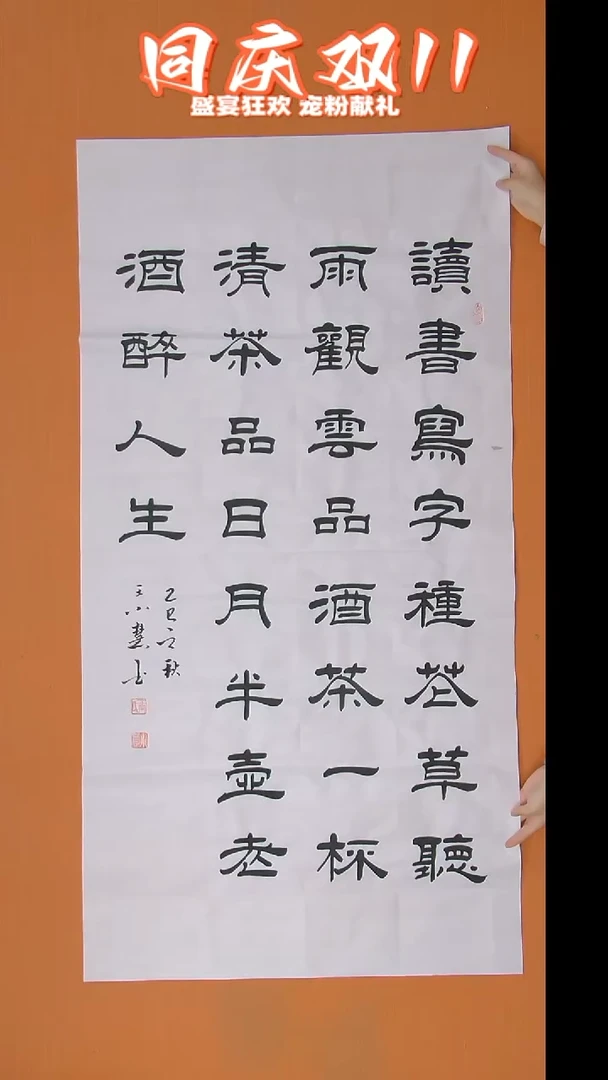 同庆双11
盛宴狂欢 宠粉献礼
讀書寫字種花草聽
雨觀雲品酒茶一杯
清茶品日月半壺老
酒醉人生
乙巳秋
王小慧书